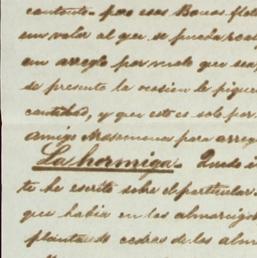 contento. pero esos Bonos flot
un valor al que se pueda real
un arreglo por malo que sea,
se presente la ocasion le pique
cantidad, y que esto es solo por
amigo Massemana para arreg
La hormiga. Quedo i
te he escrito sobre el particular
que habia en los almacigos
plantas de cedros de los alm